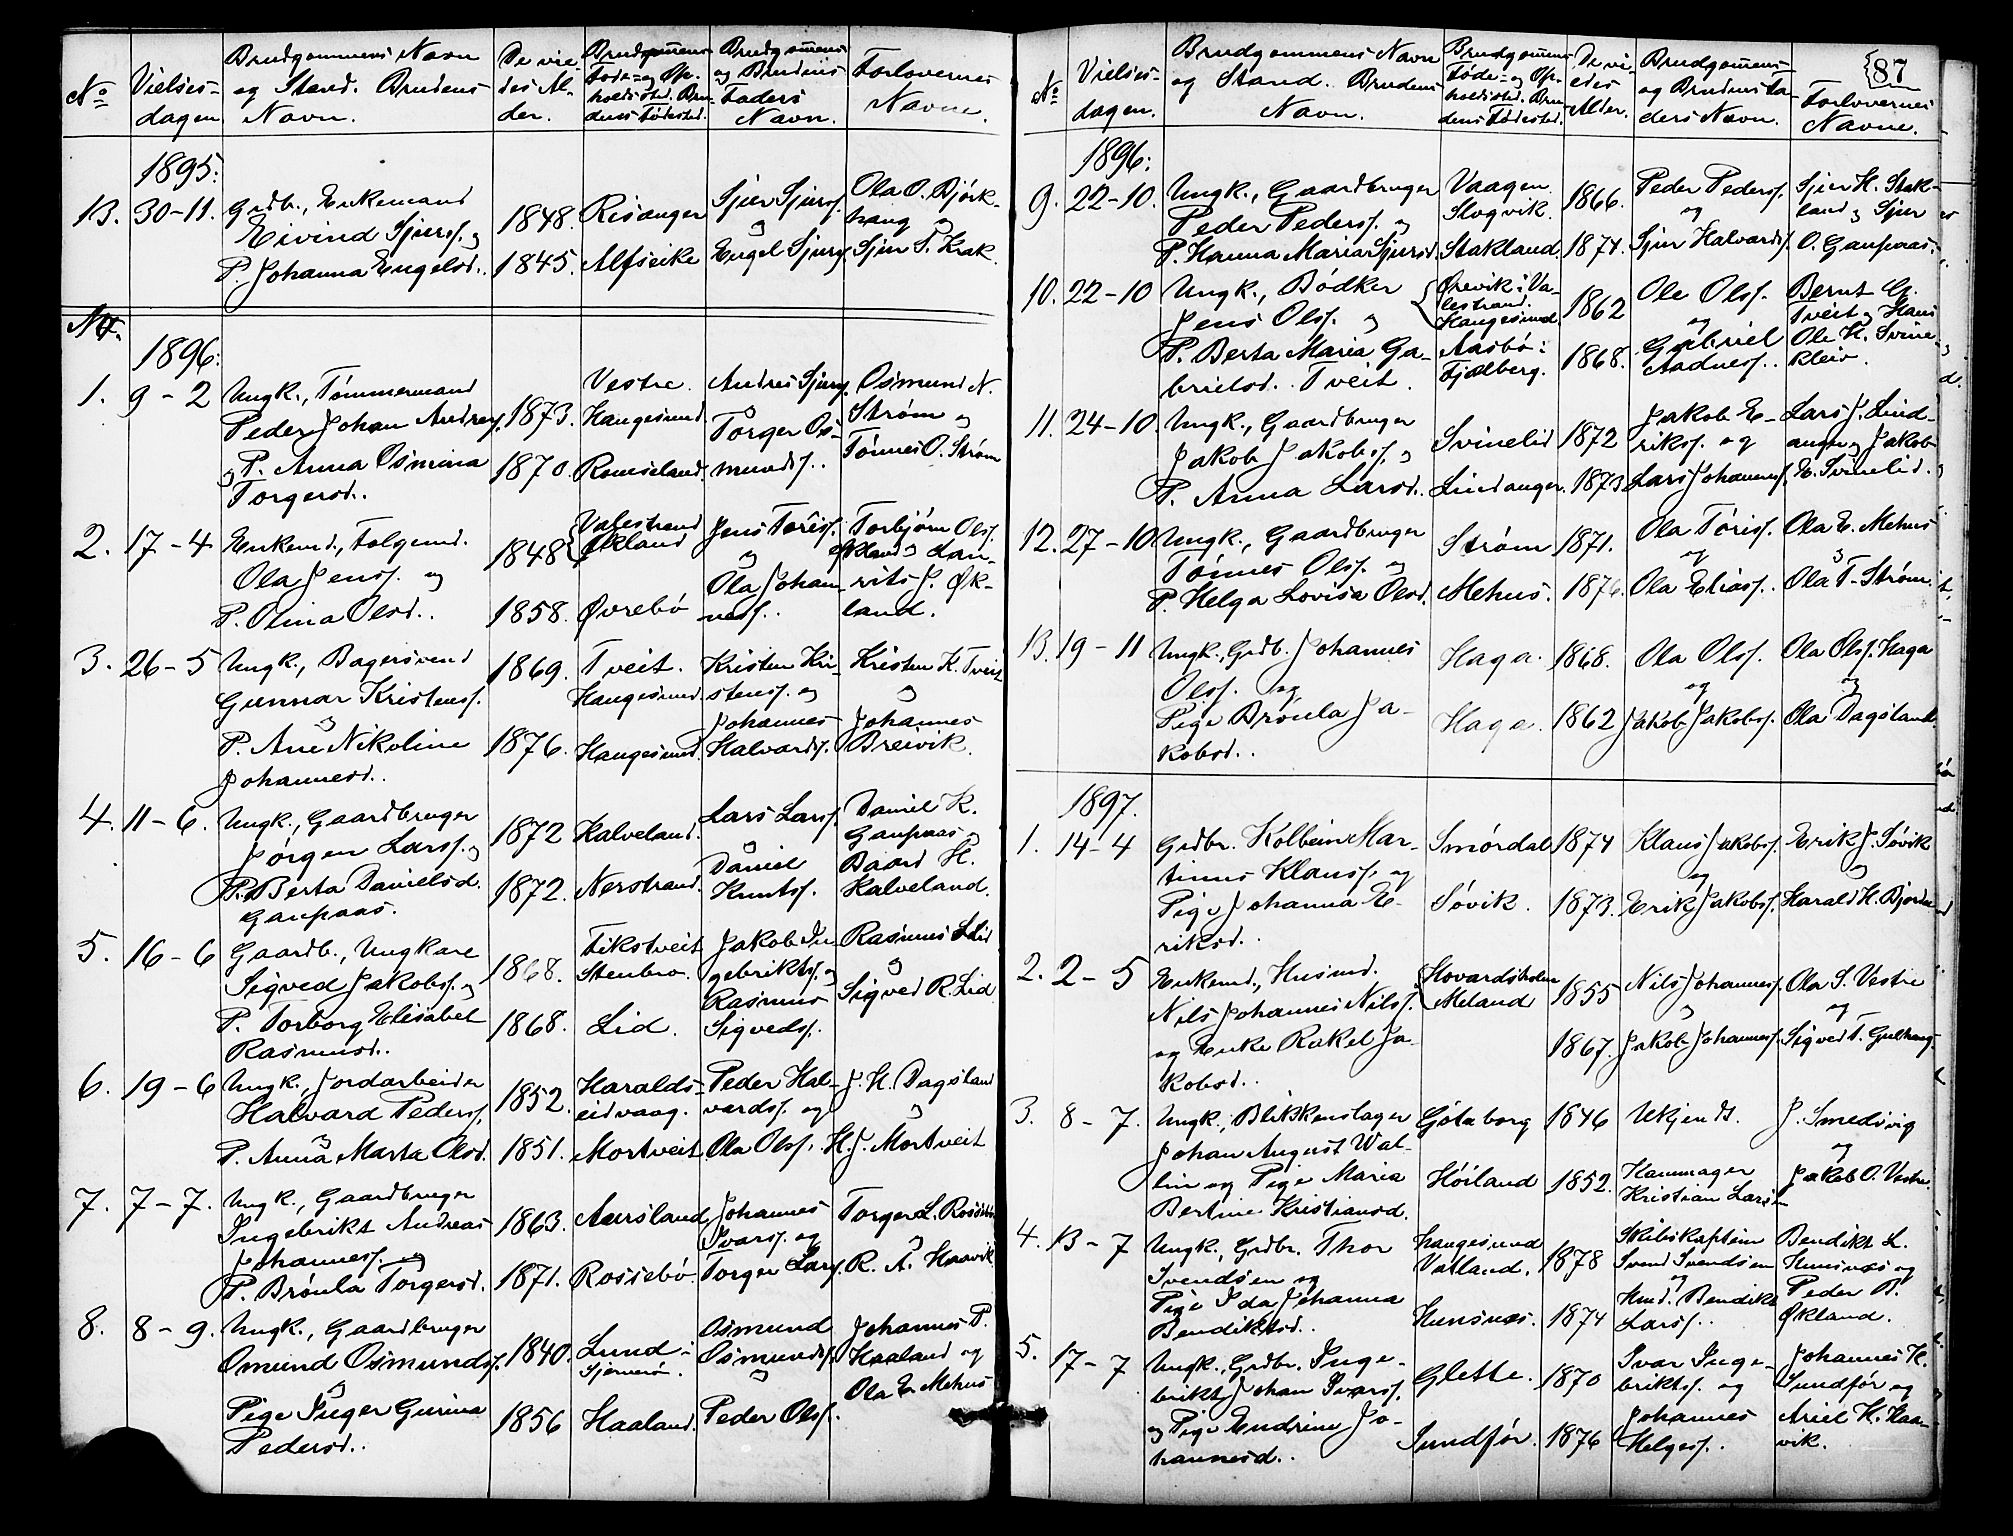 No
Vielses-
dagen
Brudgommens Navn
og Stand. Brudens
Navn.
De vie
des Al-
der.
Brudgommens
Føde- og Op-
holdssted. Bru-
dens Fødested.
Brudgommens
og Brudens
Faders
Navn.
Forlovernes
Navne.
1895:
13. 30-11. Grdb., Enkemand
Eivind Sjurs. og
P. Johanna Engelsd..
1848. Risanger
1845. Alfseike
Sjur Sjurs.
og
Engel Sjurs.
Ola O. Bjørk-
haug og
Sjur S. Krak.
No.
1896:
1. 9-2 Ungk., Tømmermand
Peder Johan Andreas.
og P. Anna Osmina
Torgersd..
1873. Vestre.
Haugesund.
1870. Romseland.
Andres Sjurs.
og
Torger Os-
munds..
Osmund N.
Strøm og
Tønnes O. Strøm
2. 17-4 Enkemd., Følgemd.
Ola Jenss. og
P. Olina Olsd..
1848 { Valestrand
Økland
1858. Øvrebø
Jens Toress.
og
Ola Johan-
ness..
Torbjørn Olss.
Økland og Lau-
rits J. Øk-
land.
3. 26-5 Ungk., Bagersvend
Gunnar Kristens.
og
P. Ane Nikoline
Johannesd..
1869. Tveit.
Haugesund.
1876. Haugesund.
Kristen Kri-
stens. og
Johannes
Halvards.
Kristen K. Tveit
og
Johannes
Breivik.
4. 11-6. Ungk., Gaardbruger
Jørgen Larss. og
P. Berta Danielsd.
Gaupaas.
1872 Kalveland.
1872. Nerstrand.
Lars Larss.
og
Daniel
Knuts.
Daniel K.
Gaupaas og
Baard H.
Kalveland.
5. 16-6 Gaardb., Ungkare
Sigved Jakobs. og
P. Torborg Elisabet
Rasmusd..
1868. Fikstveit
Stenbro.
1868. Lid.
Jakob In-
gebrikts. og
Rasmus
Sigveds.
Rasmus S Lid
og
Sigved R. Lid
6. 19-6 Ungk., Jordarbeider
Halvard Peders.
og
P. Anna Marta Olsd.
1852. Haralds-
eidvaag.
1851. Mortveit
Peder Hal-
vards. og
Ola Olss.
J. H. Dagsland
og
H. J. Mortveit
7. 7-7. Ungk., Gaardbruger
Ingebrikt Andreas
Johanness. og
P. Brønla Torgersd.
1863. Aursland
1871. Rossebø
Johannes
Ivars. og
Torger Larss.
Torger L. Rossebø
og
R. A. Haavik
8. 8-9. Ungk., Gaardbruger
Omund Osmunds.
og
Pige Inger Gurina
Pedersd..
1840. Lund-
Sjernerø.
1856 Haaland.
Osmund
Osmunds.
og
Peder Olss.
Johannes P.
Haaland og
Ola E. Mehus
87
No
Vielses-
dagen.
Brudgommens Navn
og Stand. Brudens
Navn.
Brudgommens
Føde- og Op-
holdssted. Bru-
dens Fødested.
De vi-
edes
Alder.
Brudgommens
og Brudens Fa-
ders Navn.
Forlovernes
Navne.
1896:
9. 22-10. Ungk., Gaardbruger
Peder Peders. og
P. Hanna Maria Sjursd.
Vaagen.
Slogvik.
Stakland.
1866.
1874.
Peder Peders.
og
Sjur Halvards.
Sjur H. Stak-
land og Sjur
O. Gaupaas.
10. 22-10 Ungk., Bødker
Jens Olss. og
P. Berta Maria Ga-
brielsd. Tveit.
{ Ørevik i Va-
lestrand.
Haugesund.
Aasbø i
Fjælberg.
1862
1868.
Ole Olss.
og
Gabriel
Aadness..
Bernt G.
Tveit og Hans
Ole H. Svine-
kleiv.
11. 24-10. Ungk., Gaardbruger
Jakob Jakobs. og
P. Anna Larsd.
Svinelid
Lindanger.
1872
1873
Jakob E-
riks. og
Lars Johanness.
Lars J. Lind-
anger og Jakob
E. Svinelid.
12. 27-10. Ungk., Gaardbruger
Tønnes Olss. og
P. Helga Lovisa Olsd.
Strøm
Mehus.
1871.
1876.
Ola Tøriss.
og
Ola Eliass..
Ola E. Mehus
og
Ola T. Strøm.
13. 19-11 Ungk., Grdb. Johannes
Olss. og
Pige Brønla Ja-
kobsd..
Haga.
Haga.
1868.
1862
Ola Olss.
og
Jakob Jakobs.
Ola Olss. Haga
og
Ola Dagsland.
1897.
1. 14-4 Grdbr. Kolbein Mar-
tinus Klauss. og
Pige Johanna E-
riksd..
Smørdal
Søvik.
1874
1873.
Klaus Jakobs.
og
Erik Jakobs.
Erik J. Søvik
og
Harald H. Bjordal
2. 2-5 Enkemd., Husmd.
Nils Johannes Nilss.
og Enke Rakel Ja-
kobsd..
{ Hovardsholm
Meland
1855
1867.
Nils Johanness.
og
Jakob Johanness.
Ola S. Vestre
og
Sigved T. Gulhaug.
3. 8-7. Ungk., Blikkenslager
Johan August Wal-
lin og Pige Maria
Bertine Kristiansd.
Gøteborg
Høiland
1846
1852.
Ukjendt.
Kammager
Kristian Larsen
J. Smedvig
og
Jakob O. Vestre.
4. 13-7 Ungk., Grdbr. Thor
Svendsen og
Pige Ida Johanna
Bendiktsd..
Haugesund
Vatland.
Hunsnæs.
1878
1874
Skibskaptein
Svend Svendsen
og
Hmd. Bendikt
Larss..
Bendikt L.
Hunsnæs og
Peder B.
Økland.
5. 17-7 Ungk., Grdbr. Inge-
brikt Johan Ivarss.
og Pige Endrine Jo-
hannesd..
Glette.
Sundfør.
1870
1876
Ivar Inge-
brikts. og
Johannes
Helges..
Johannes H.
Sundfør og
Ariel H. Haa-
vik.